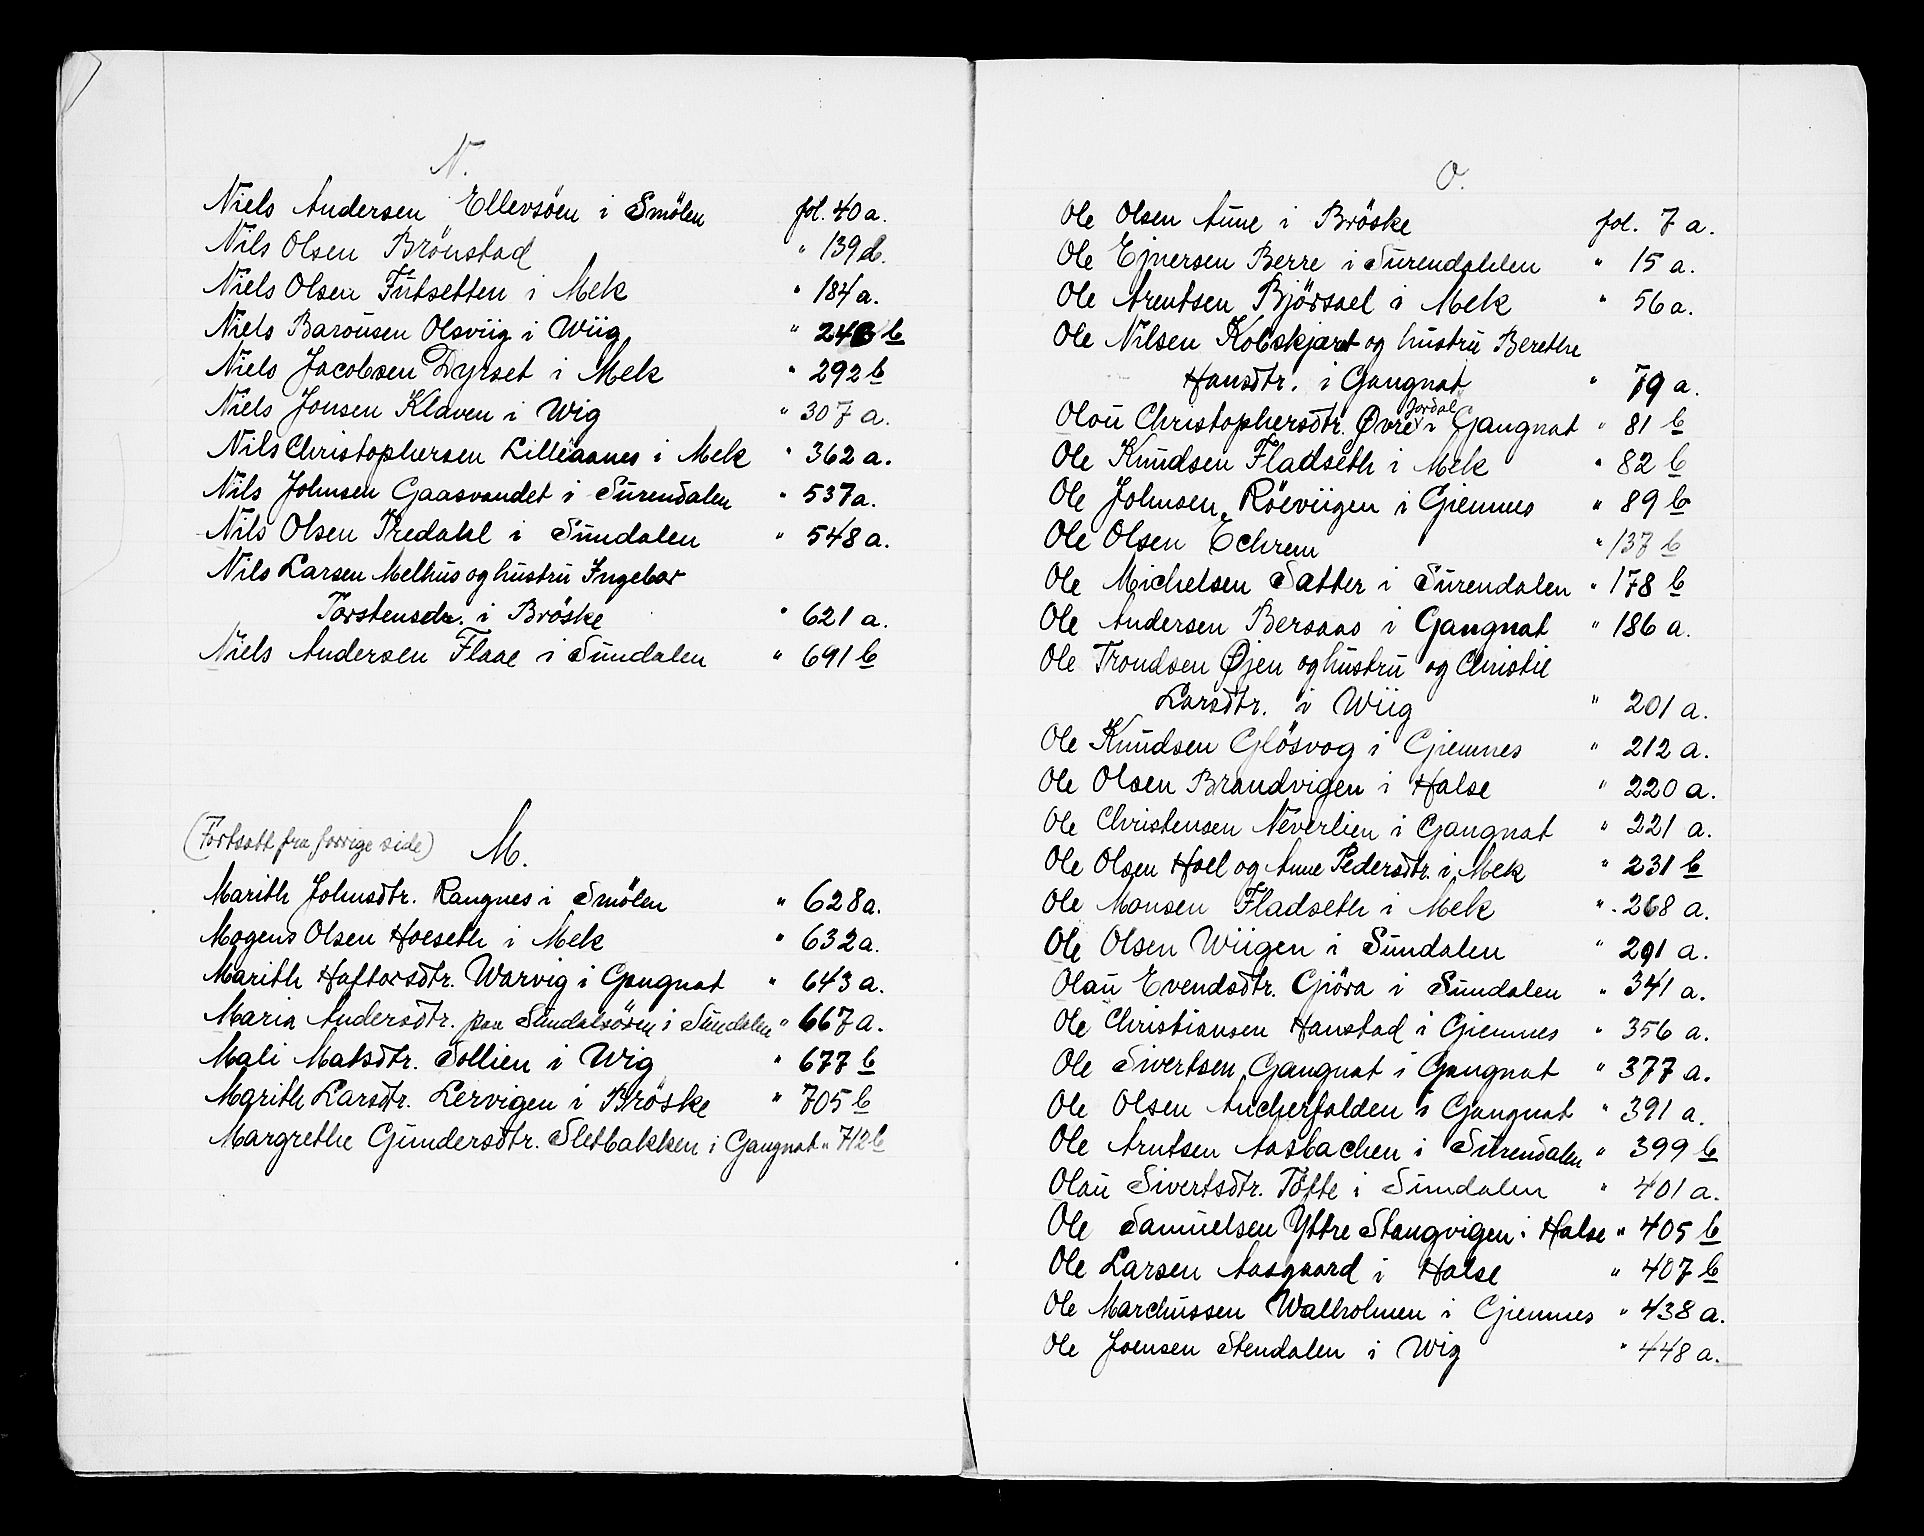 N.
Niels Andersen Ellevsöen i Smölen fol. 40 a.
Nils Olsen Brönstad " 139 b.
Niels Olsen Futsetten i Mek " 184 a.
Niels Baroúsen Olsviig i Wiig " b
Niels Jacobsen Dyrset i Mek " 292 b
Niels Jonsen Klaven i Wig " 307 a.
Nils Christophersen Lilleaanes i Mek " 362 a.
Nils Johnsen Gaasvandet i Surendalen " 537 a.
Nils Olsen Tredahl i Sundalen " 548 a.
Nils Larsen Melhus og hustru Ingebor
Torstensdr. i Bröske " 621 a.
Niels Andersen Flaae i Sundalen " 691 b
(Fortsatt fra forrige side) M.
Marith Johnsdtr. Rangnes i Smölen " 628 a.
Mogens Olsen Hoeseth i Mek " 632 a.
Marith Haftorsdtr. Warvig i Gangnat " 643 a.
Maria Andersdtr. paa Sundalsören i Sundalen " 667 a.
Mali Matsdtr. Sollien i Wig " 677 b
Marith Larsdtr. Lervigen i Bröske " 705 b
Margrethe Gundersdtr. Sletbakken i Gangnat " 712 b
O.
Ole Olsen Aune i Bröske fol. 7 a.
Ole Ejnersen Berre i Surendalen " 15 a.
Ole Arentsen Björsael i Mek " 56 a.
Ole Nilsen Kolskjæret og hustru Berethe
Hansdtr. i Gangnat " 79 a.
Olau Christophersdtr. Øvre Jordal i Gangnat " 81 b
Ole Knudsen Fladseth i Mek " 82 b
Ole Johnsen Röeviigen i Giemnes " 89 b
Ole Olsen Echrem " 137 b
Ole Michelsen Satter i Surendalen " 178 b
Ole Andersen Bersaas i Gangnat " 186 a.
Ole Trondsen Øjen og hustru og Christie
Larsdtr. i Wiig " 201 a.
Ole Knudsen Glösvog i Giemnes " 212 a.
Ole Olsen Brandvigen i Halse " 220 a.
Ole Christensen Neverlien i Gangnat " 221 a.
Ole Olsen Hoel og Anne Pedersdtr. i Mek " 231 b
Ole Monsen Fladseth i Mek " 268 a.
Ole Olsen Wiigen i Sundalen " 291 a.
Olau Evendsdtr. Gjöra i Sundalen " 341 a.
Ole Christiansen Hanstad i Giemnes " 356 a.
Ole Sivertsen Gangnat i Gangnat " 377 a.
Ole Olsen Ancherfalden i Gangnat " 391 a.
Ole Arntsen Aasbachen i Surendalen " 399 b
Olau Sivertsdtr. Töfte i Sundalen " 401 a.
Ole Samuelsen Yttre Stangvigen i Halse " 405 b
Ole Larsen Aasgaard i Halse " 407 b
Ole Marchussen Walholmen i Giemnes " 438 a.
Ole Joensen Stendalen i Wig " 448 a.